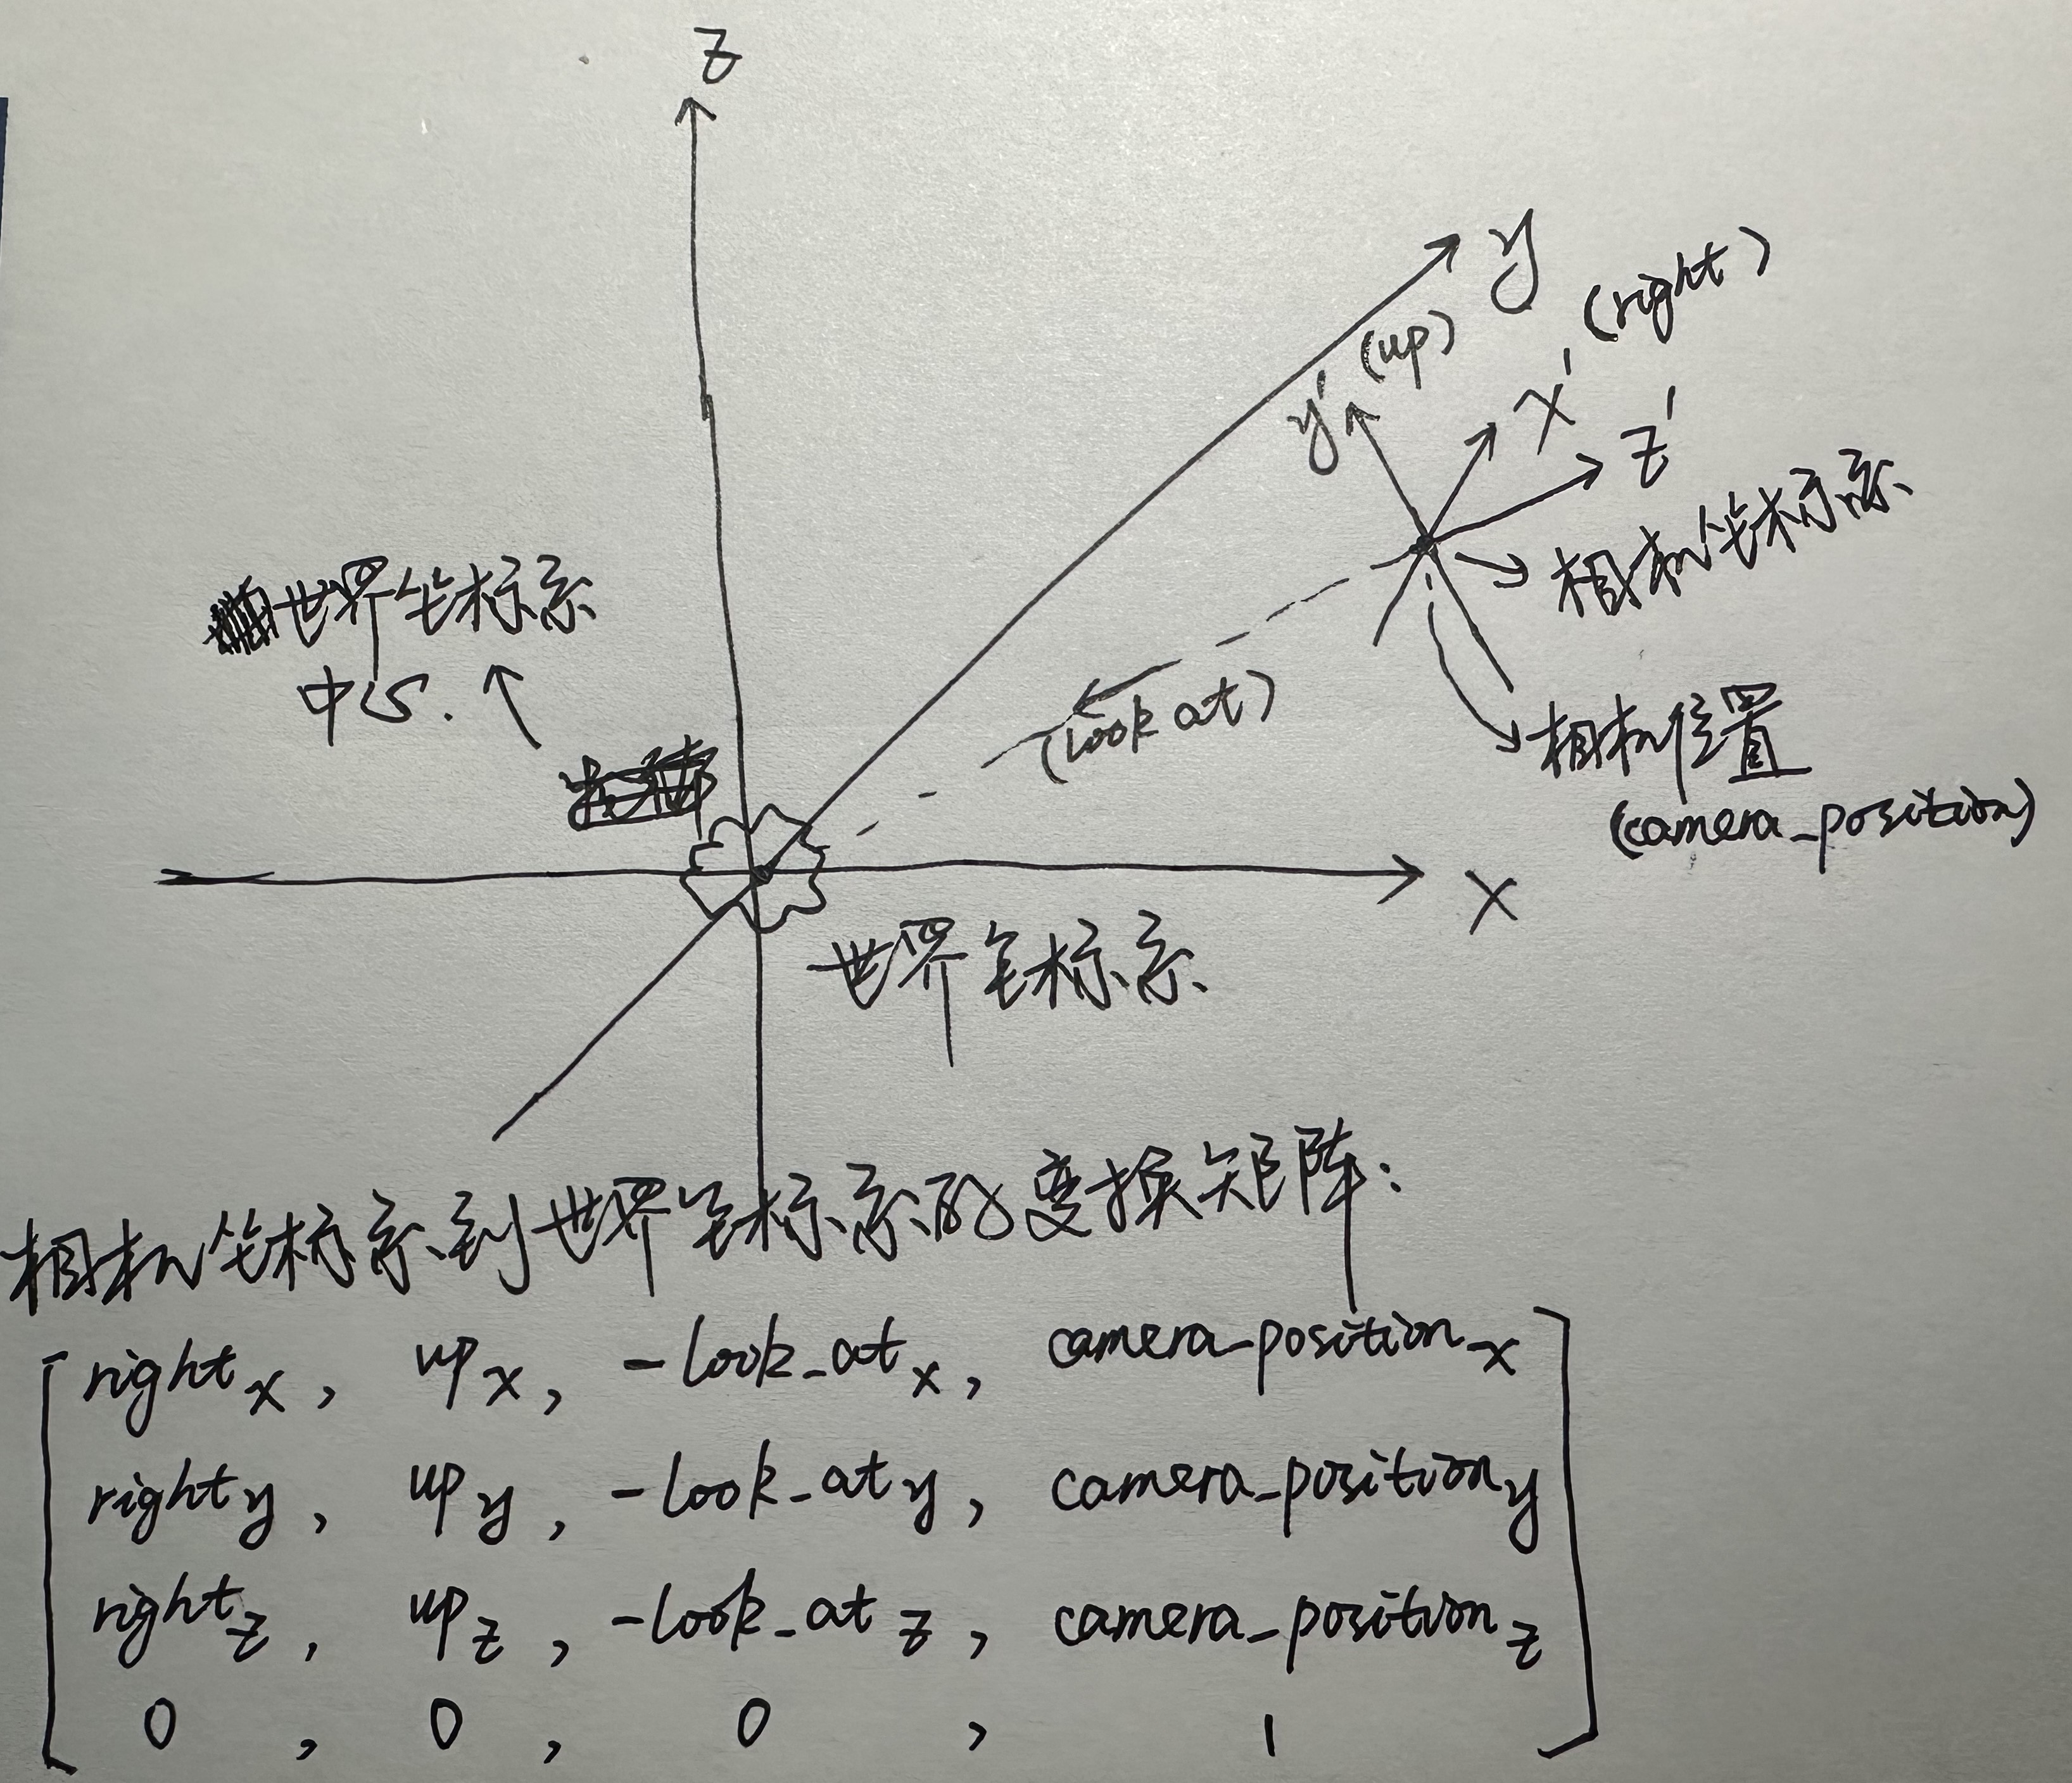 z
y
(right)
(up)
x'
y'
z'
相机坐标系
世界坐标系
中心.
(look at)
相机位置
(camera_position)
x
世界坐标系
相机坐标系到世界坐标系的变换矩阵:
right_x, up_x, -look_at_x, camera_position_x
right_y, up_y, -look_at_y, camera_position_y
right_z, up_z, -look_at_z, camera_position_z
0, 0, 0, 1